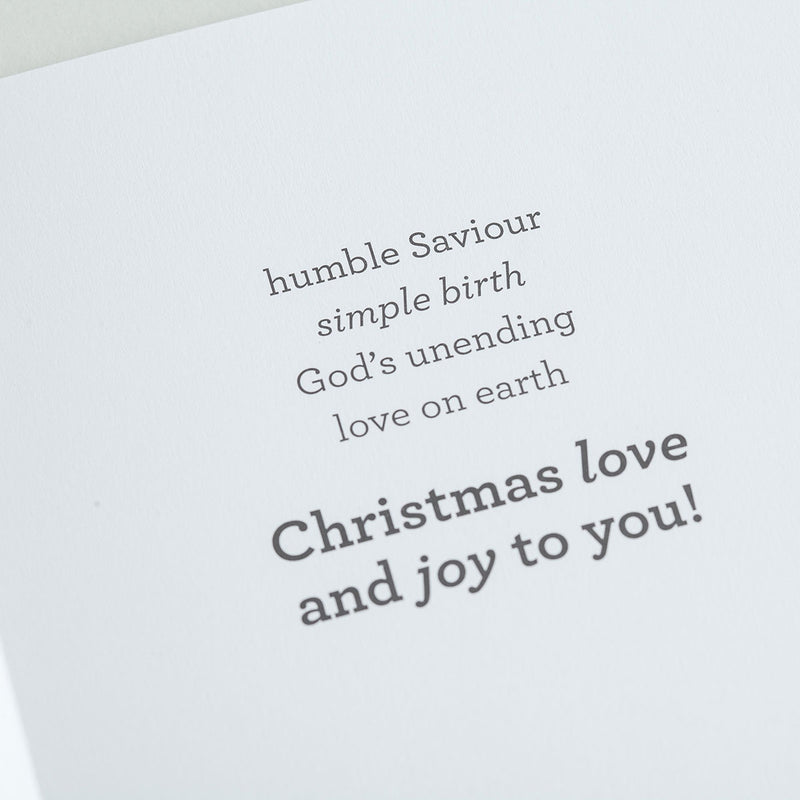 humble Saviour
simple birth
God’s unending
love on earth
Christmas love
and joy to you!